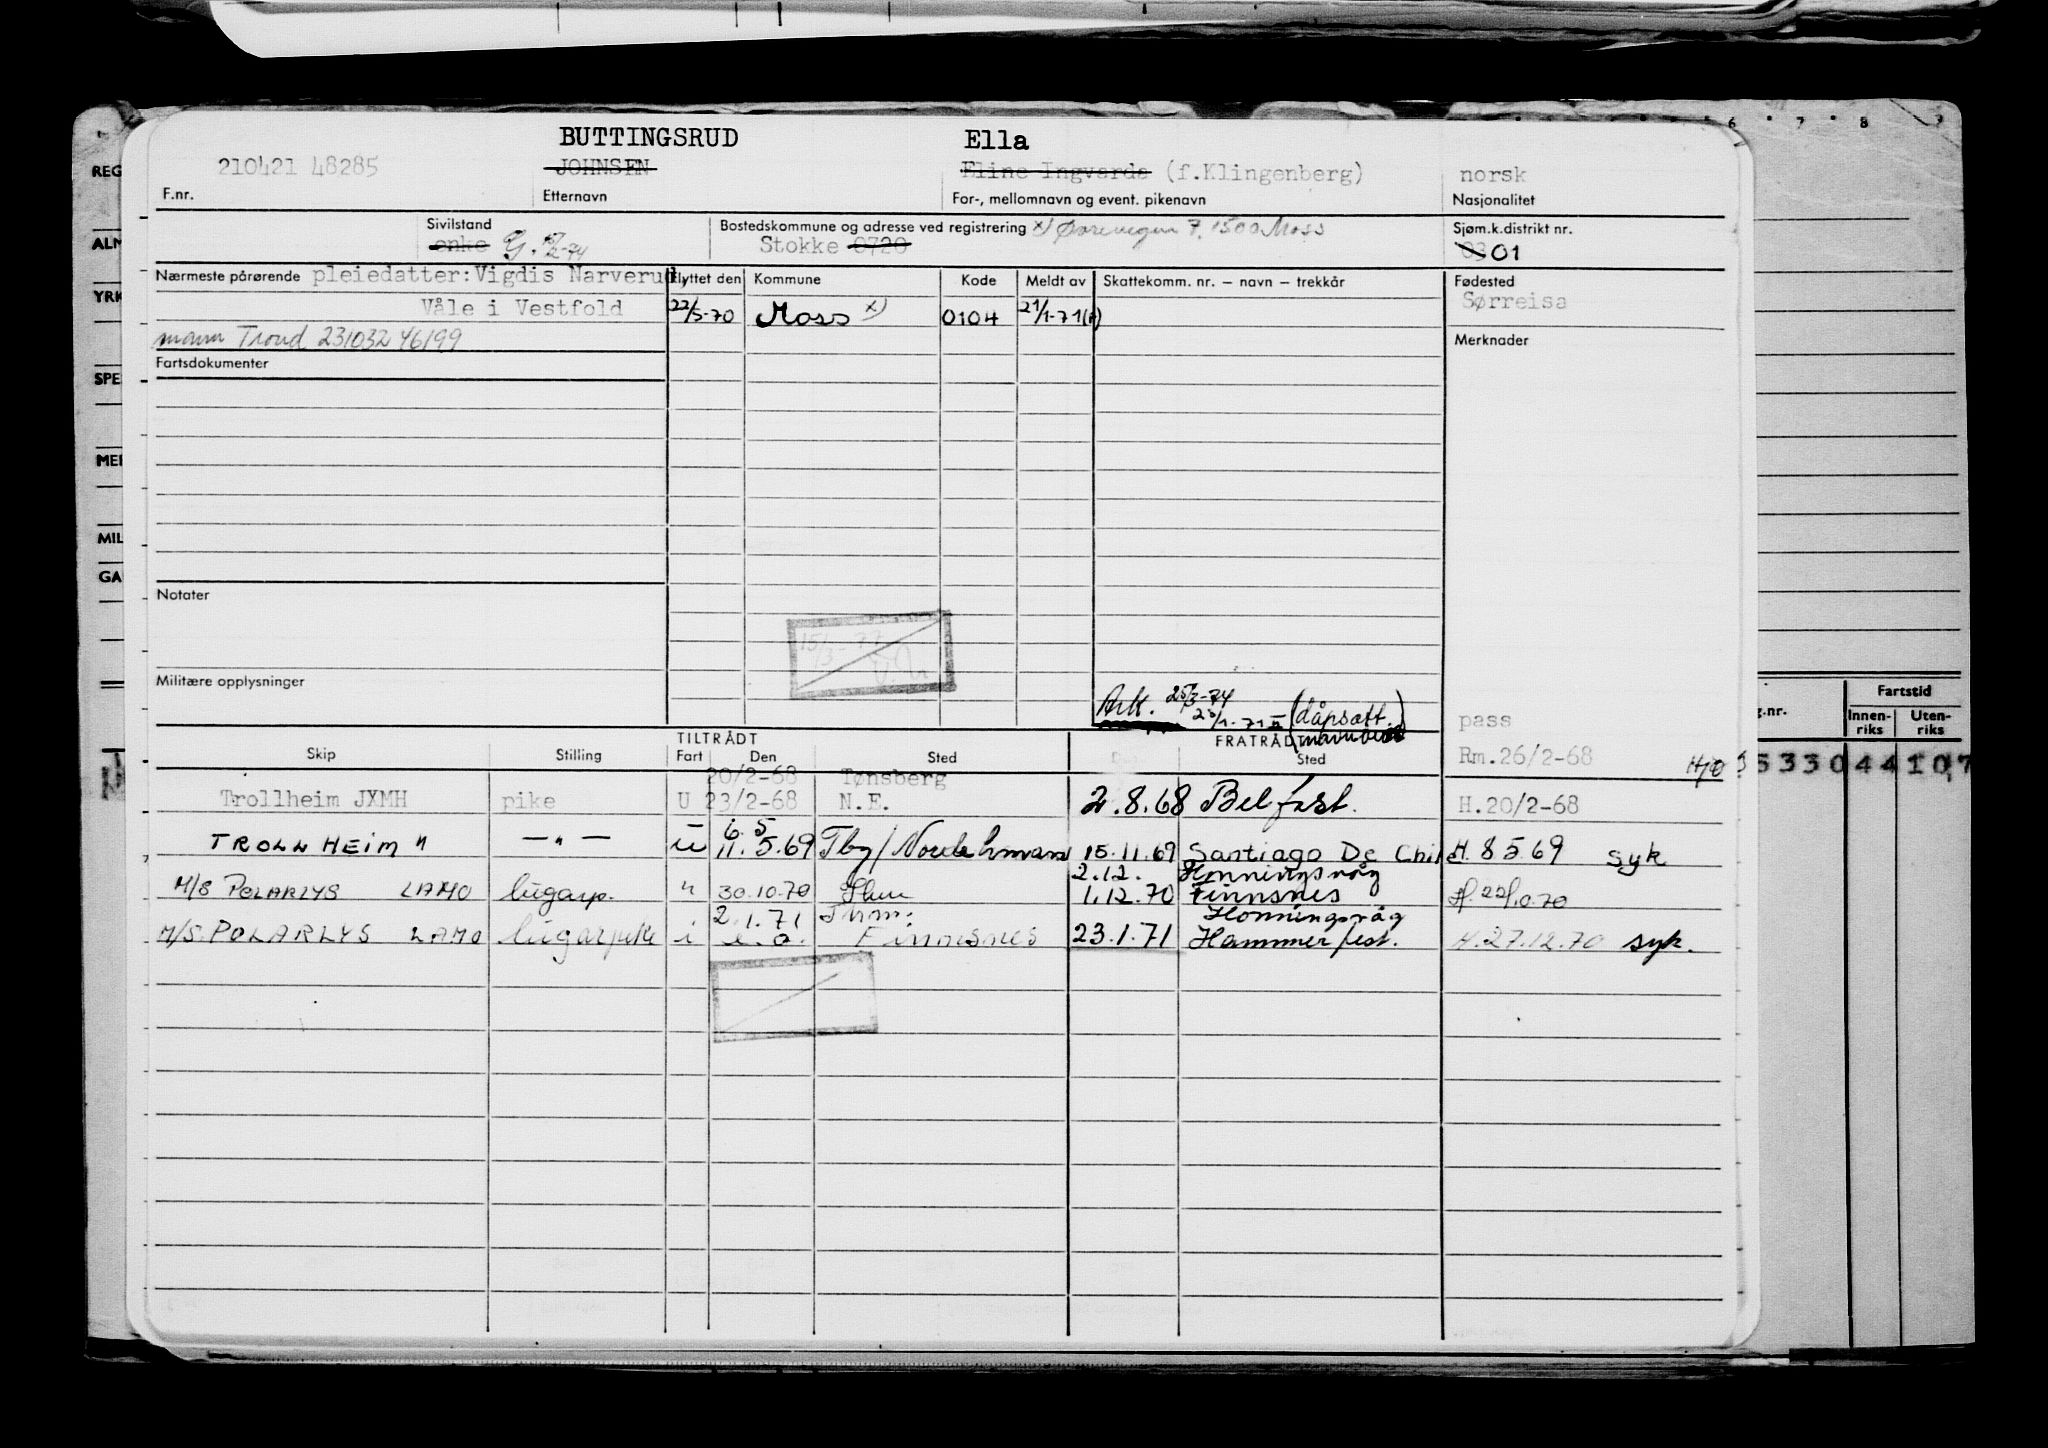 BUTTINGSRUD Ella
210421 48285 JOHNSEN Eline Ingvarda (f.Klingenberg) norsk
F.nr. Etternavn For-, mellomnavn og event. pikenavn Nasjonalitet
Sivilstand Bostedskommune og adresse ved registrering x) 7, 1500 Moss Sjøm.k.distrikt nr.
enke G. Stokke 0720 03 01
Nærmeste pårørende pleiedatter: Vigdis Narverud, Flyttet den Kommune Kode Meldt av Skattekomm. nr. – navn – trekkår Fødested
Våle i Vestfold 22/5-70 Moss x) 0104 21/1-71(A) Sørreisa
mann Trond 231032 46199 Merknader
Fartsdokumenter
Notater
15/3-77
Militære opplysninger
Ark. 25/3-74
(dåpsatt. pass
TILTRÅDT FRATRÅDT
Skip Stilling Fart Den Sted Den Sted Rm.26/2-68
20/2-68 Tønsberg
Trollheim JXMH pike U 23/2-68 N.E. 2.8.68 Belfast. H.20/2-68
6.5
TROLLHEIM " — " — U 11.5.69 Tbg/ 15.11.69 Santiago De Chile H.8569 syk
2.12. Honningsvåg
M/S POLARLYS LAMO lugarp. " 30.10.70 1.12.70 Finnsnes H.22/10.70
2.1.71 Honningsvåg
M/S. POLARLYS LAMO lugarpike i Finnsnes 23.1.71 Hammerfest. H.27.12.70 syk.
REG
ALM
YRK
SPE
MER
MIL
GA
6 7 8
g.nr. Fartstid
Innen-riks Uten-riks
53304410,7